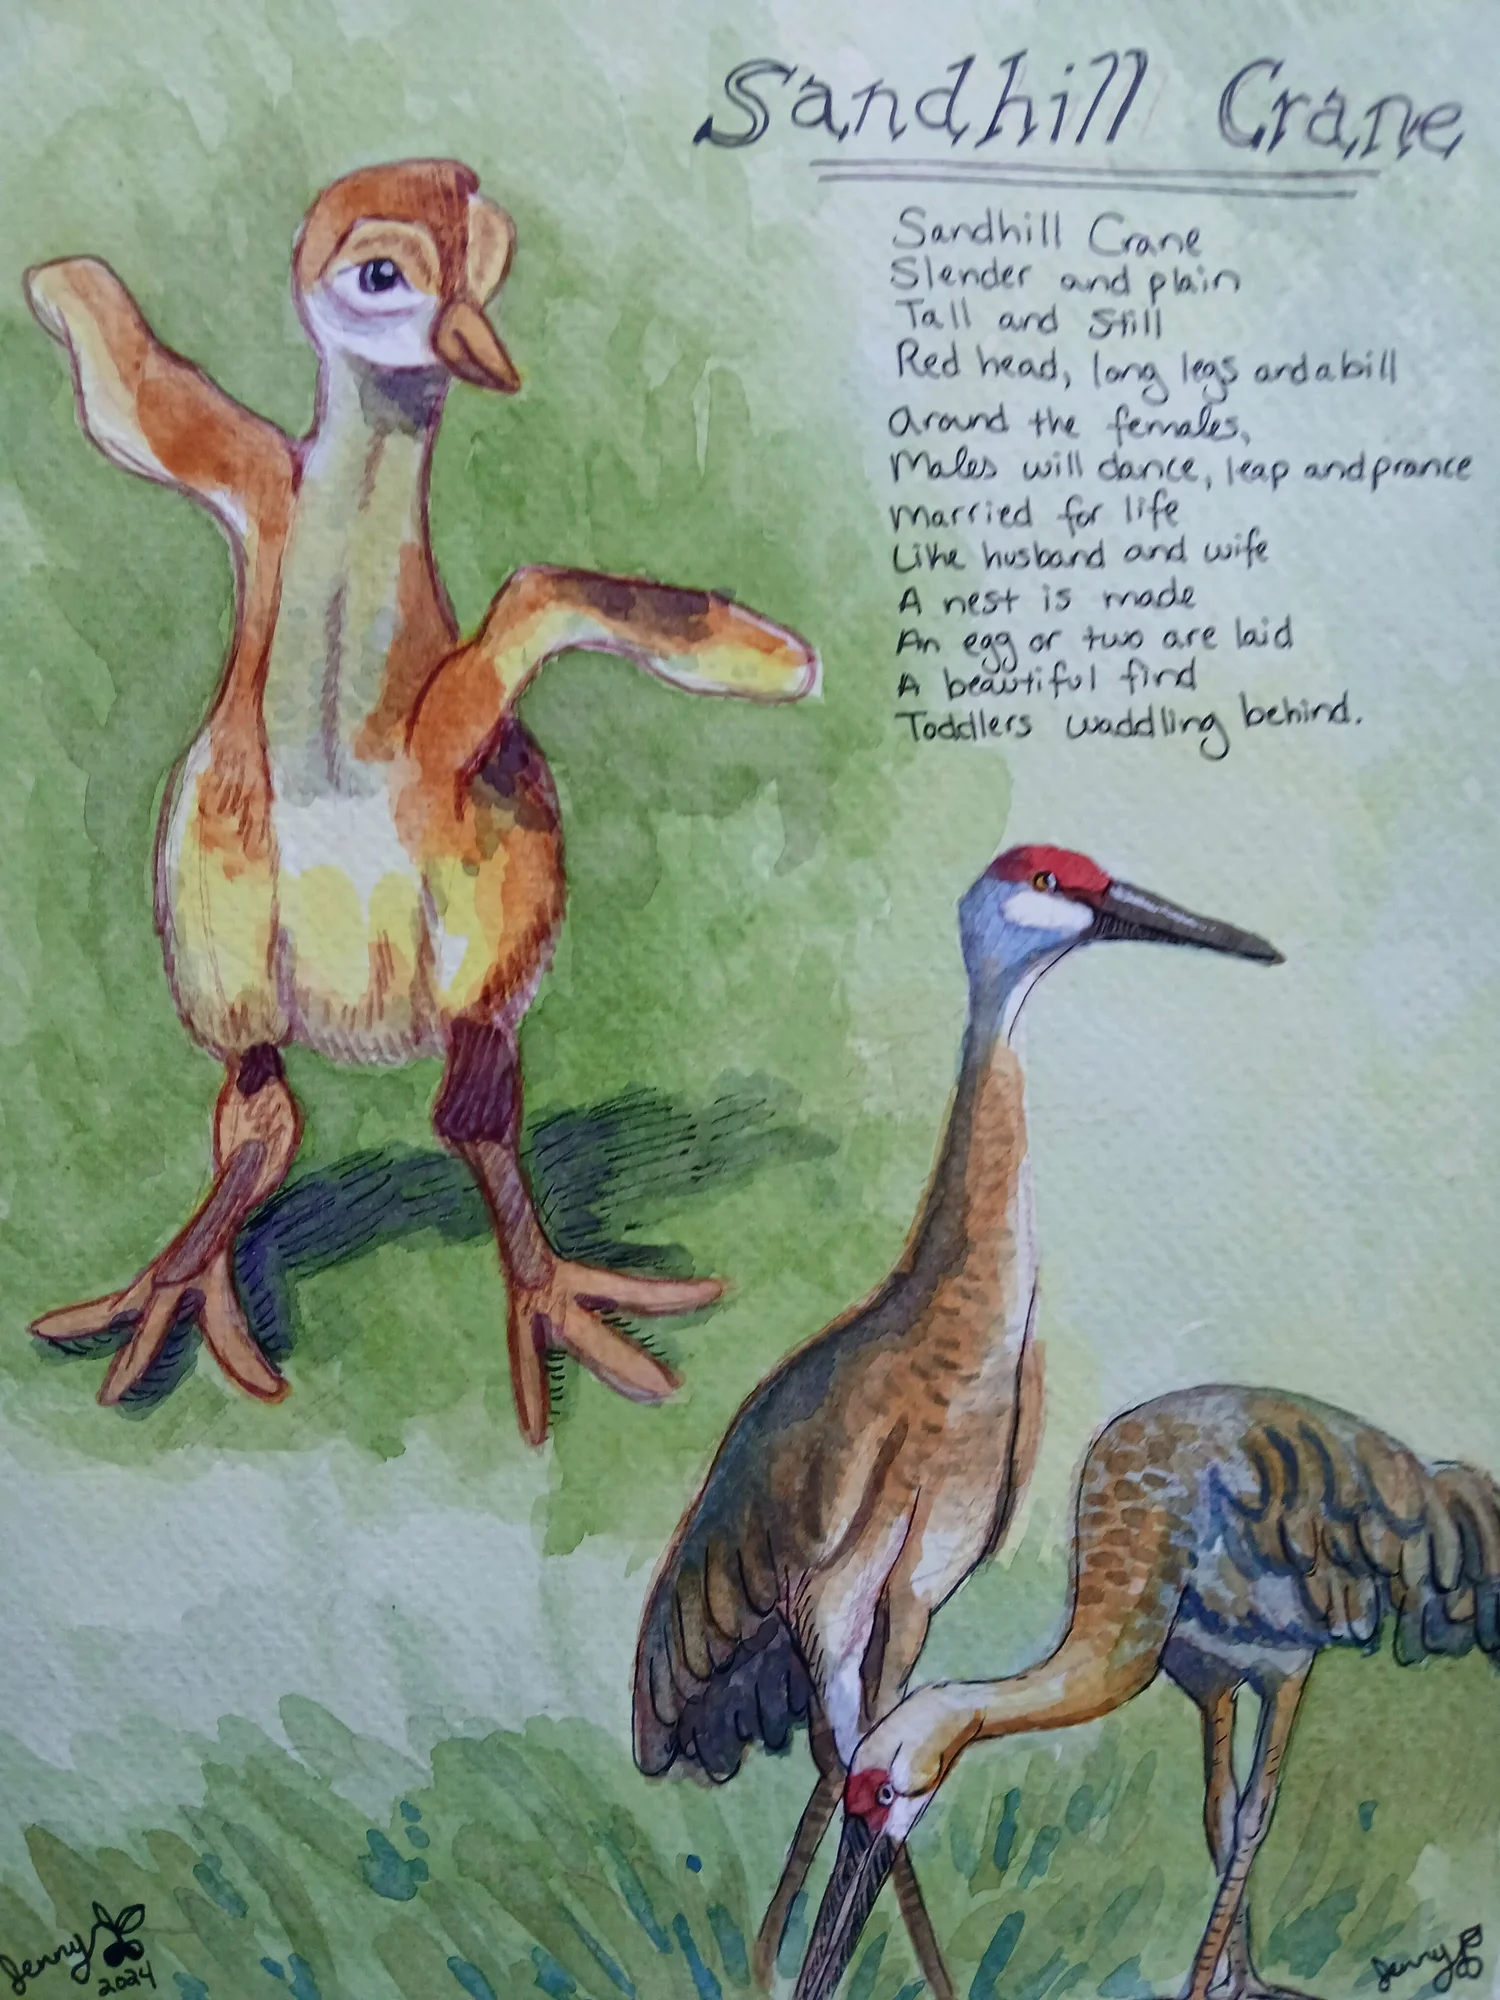 Sandhill Crane
Sandhill Crane
Slender and plain
Tall and Still
Red head, long legs and a bill
Around the females,
Males will dance, leap and prance
Married for life
Like husband and wife
A nest is made
An egg or two are laid
A beautiful find
Toddlers waddling behind.
Jenny
2024
Jenny